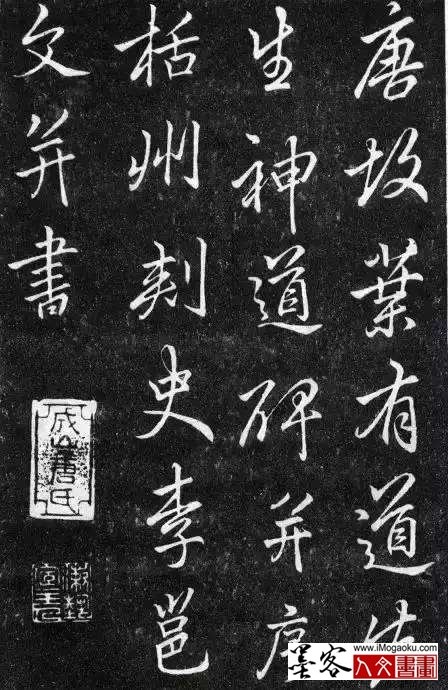 唐故葉有道先
生神道碑并序
栝州刺史李邕
文并書
成山唐氏
www.iMogaoku.com
墨客
人文書畫